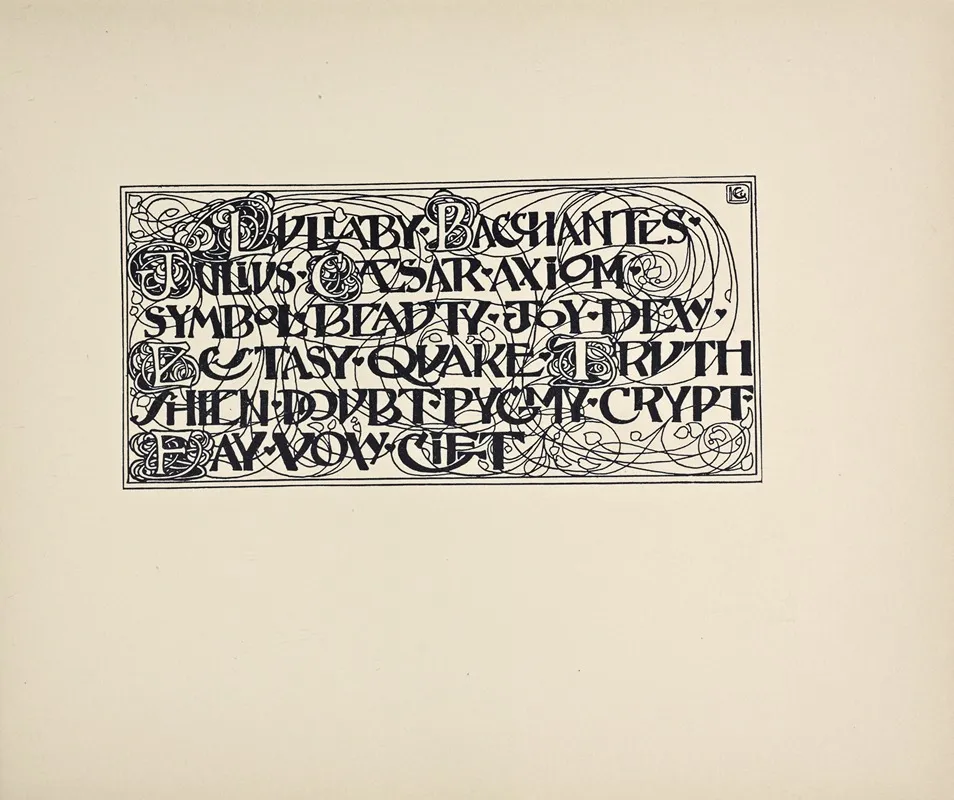 LVLLABY · BACCHANTES ·
JULIUS · CÆSAR · AXIOM ·
SYMBOL · BEAVTY · JOY · DEW ·
ECSTASY · QVAKE · TRVTH
SHIEN · DOVBT · PYGMY · CRYPT ·
FAY · VOW · GIFT